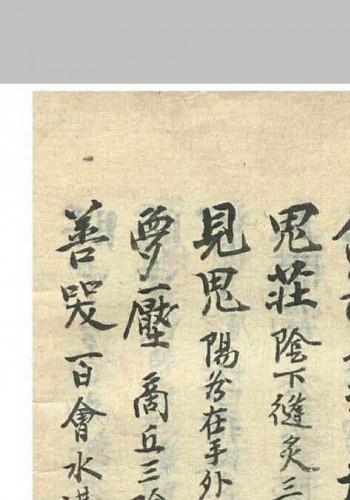 鬼莊 陰下縫炙三
見鬼 陽谷在手外
夢壓 商丘三陰
善哭 百會水溝